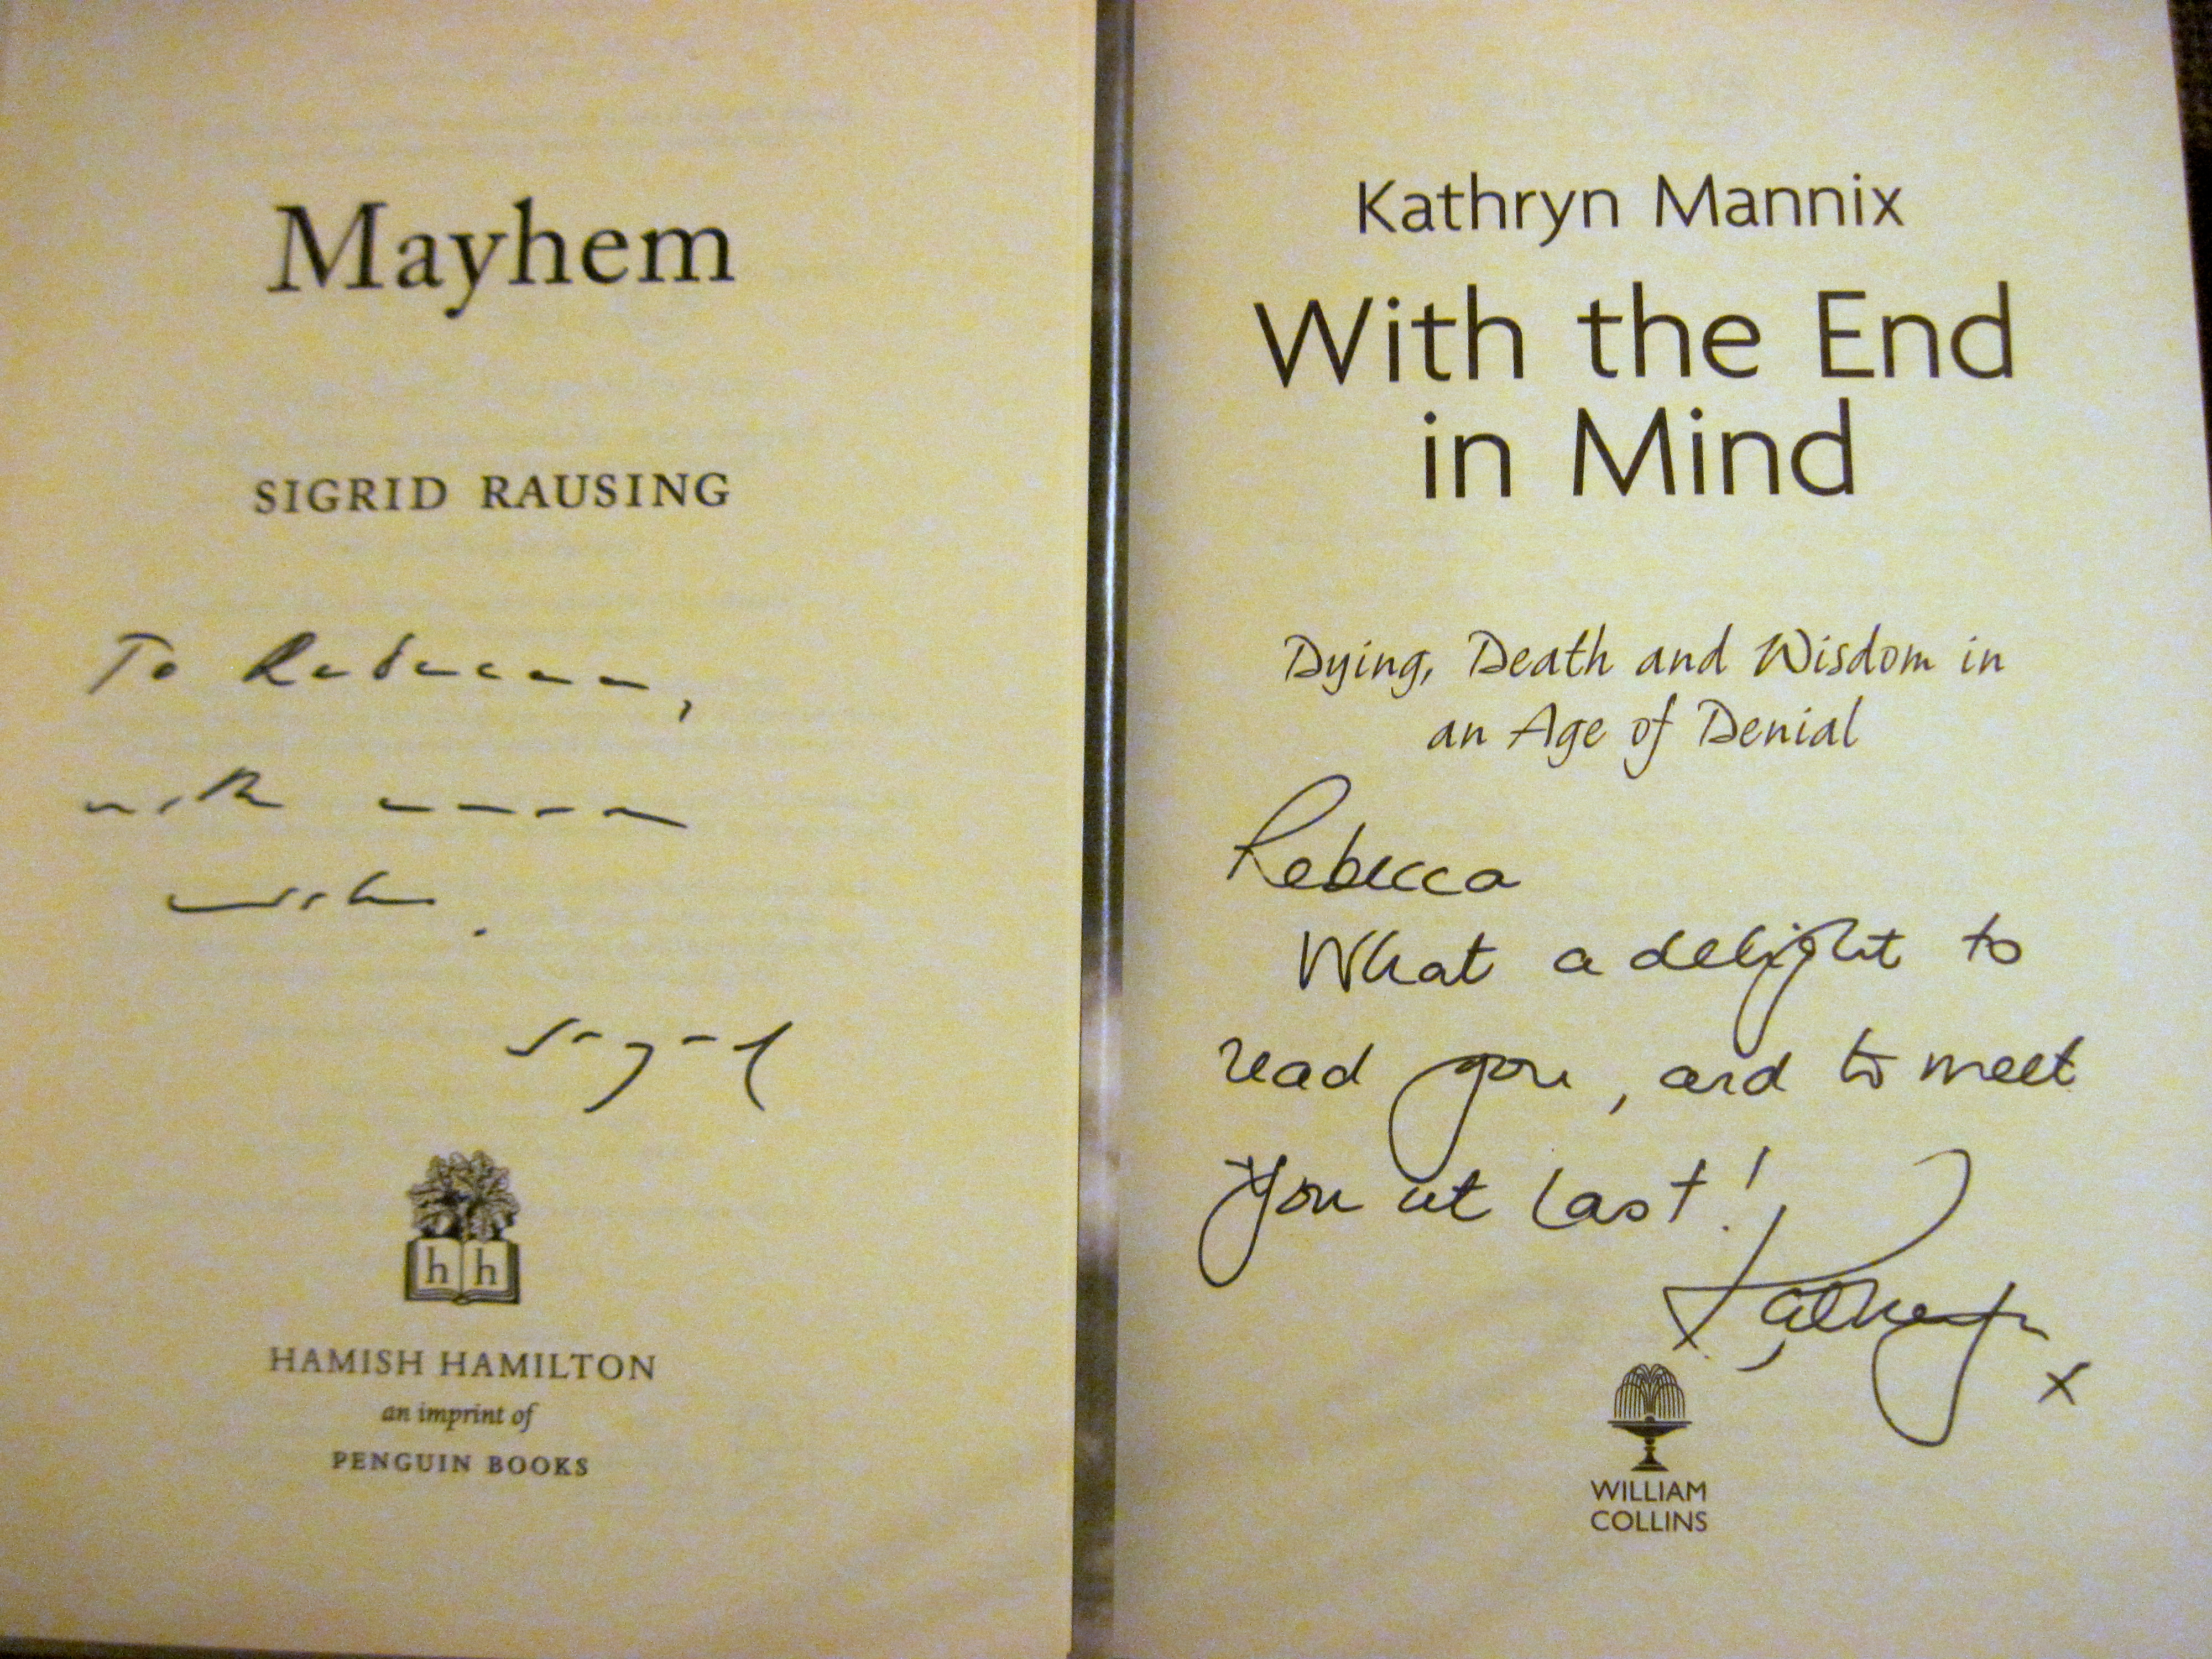 Mayhem
SIGRID RAUSING
To Rebecca,
with warm
wishes.
Sigrid
h h
HAMISH HAMILTON
an imprint of
PENGUIN BOOKS
Kathryn Mannix
With the End
in Mind
Dying, Death and Wisdom in
an Age of Denial
Rebecca
What a delight to
read you, and to meet
you at last!
Kathryn x
WILLIAM
COLLINS